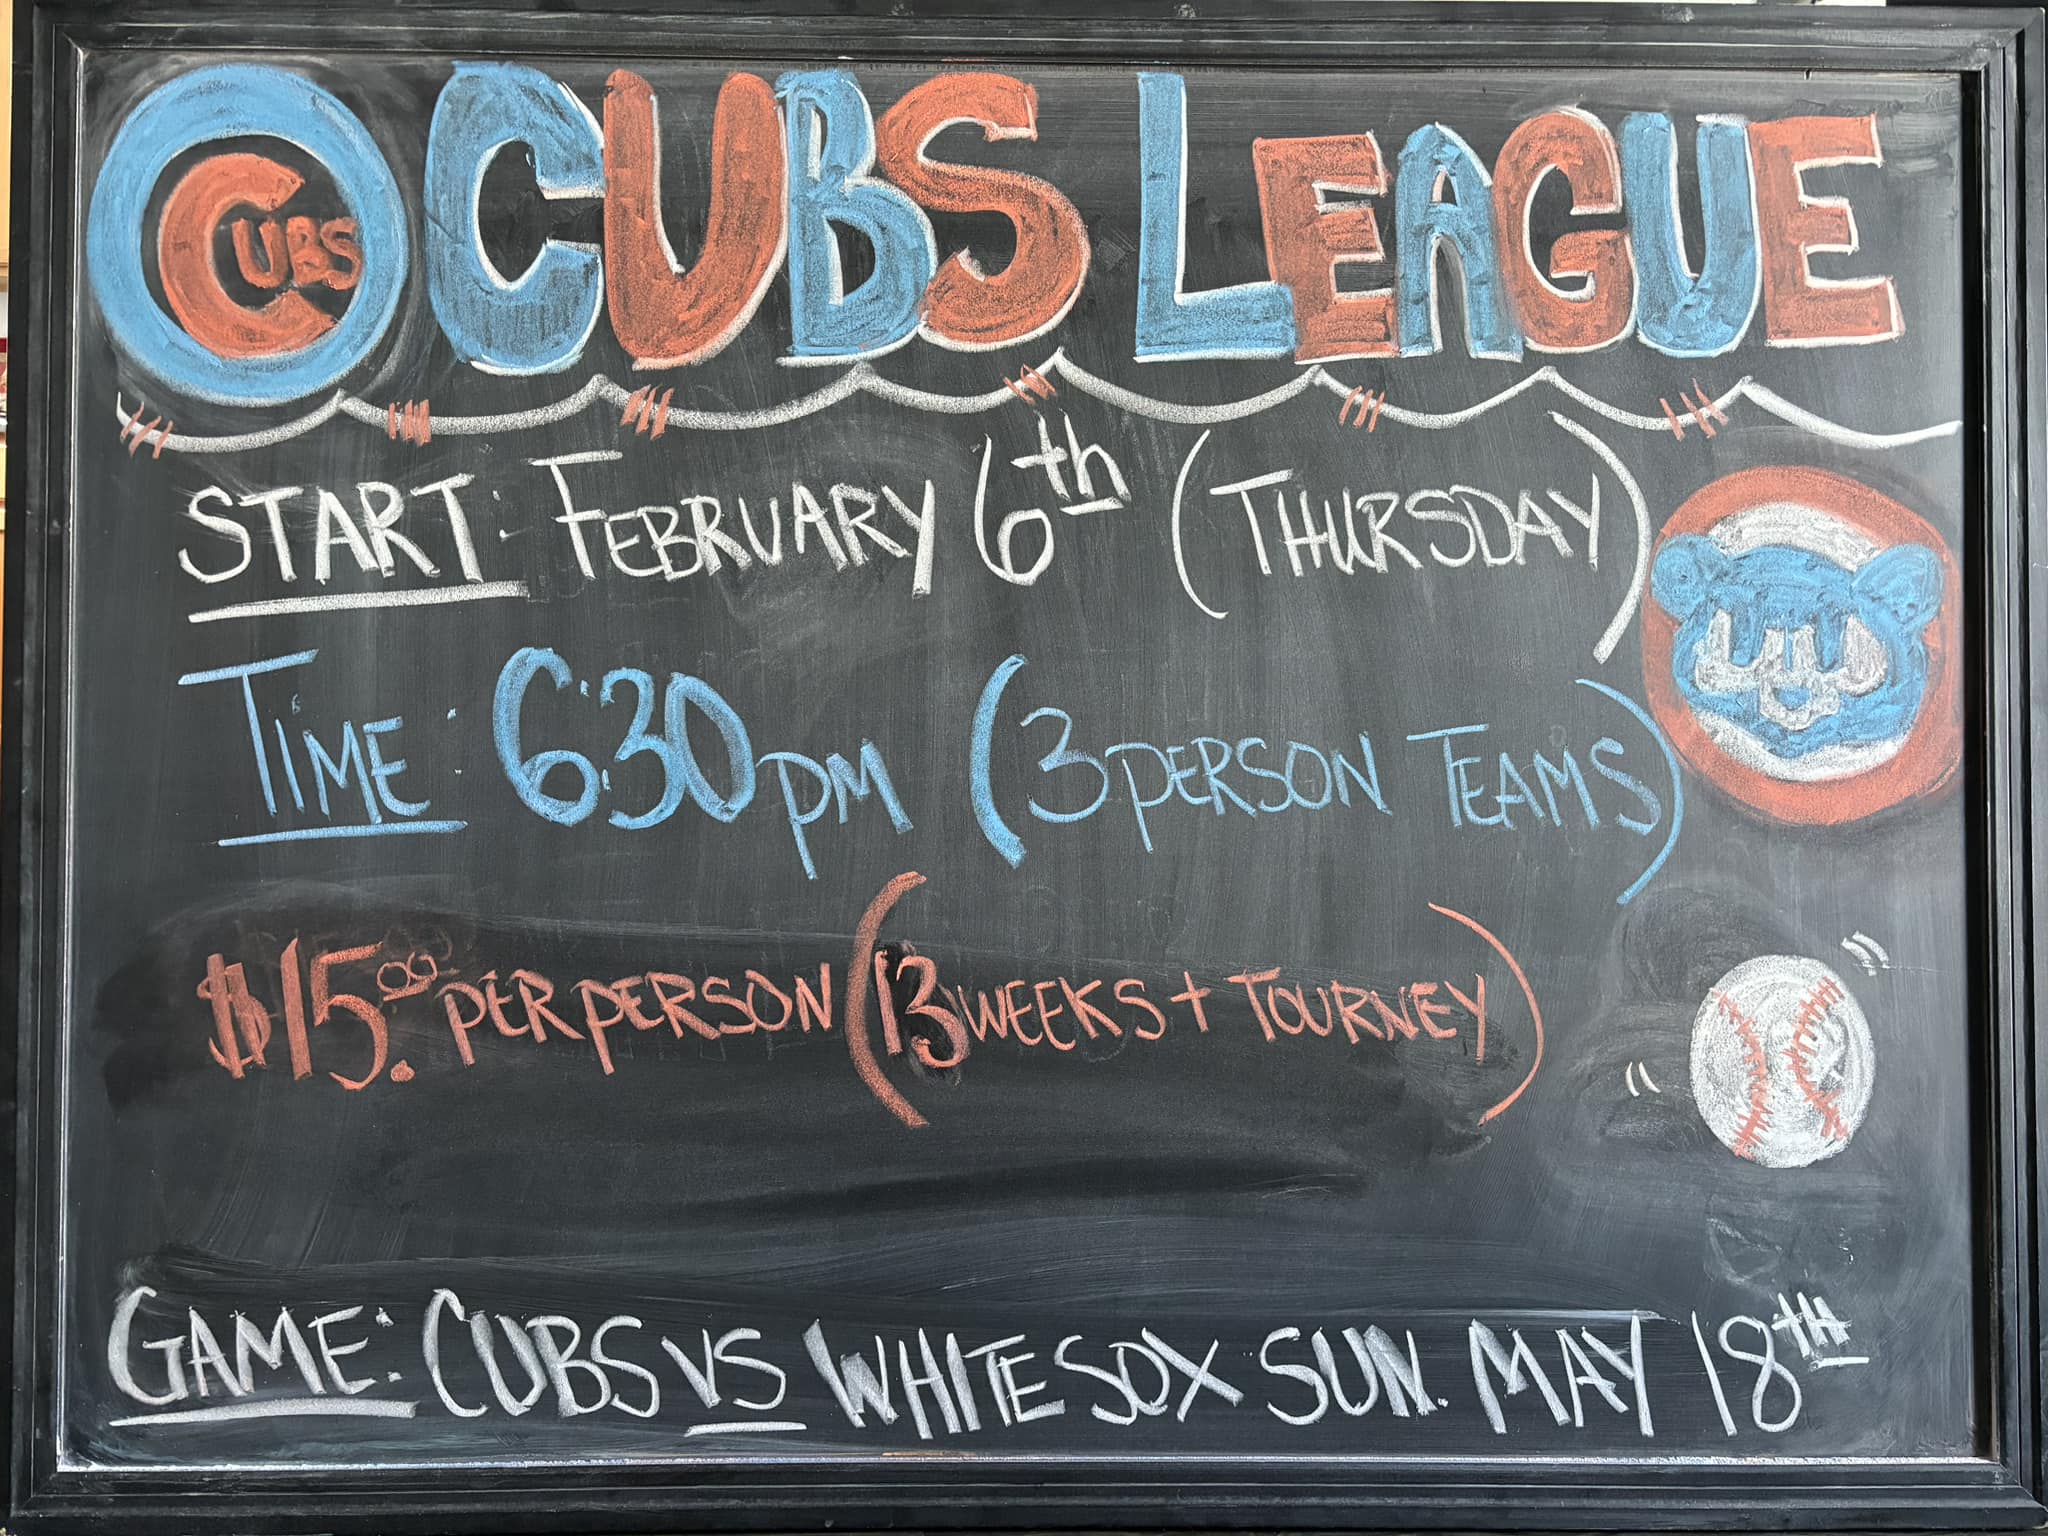 CUBS CUBS LEAGUE
START: FEBRUARY 6th (THURSDAY)
TIME: 6:30PM (3 PERSON TEAMS)
$15.00 PER PERSON (13 WEEKS + TOURNEY)
GAME: CUBS VS WHITE SOX SUN. MAY 18TH